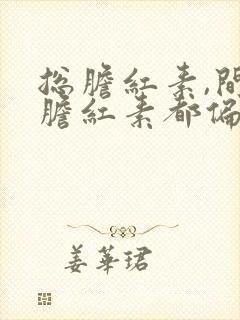 总膽紅素,間
膽紅素都偏
姜華珺